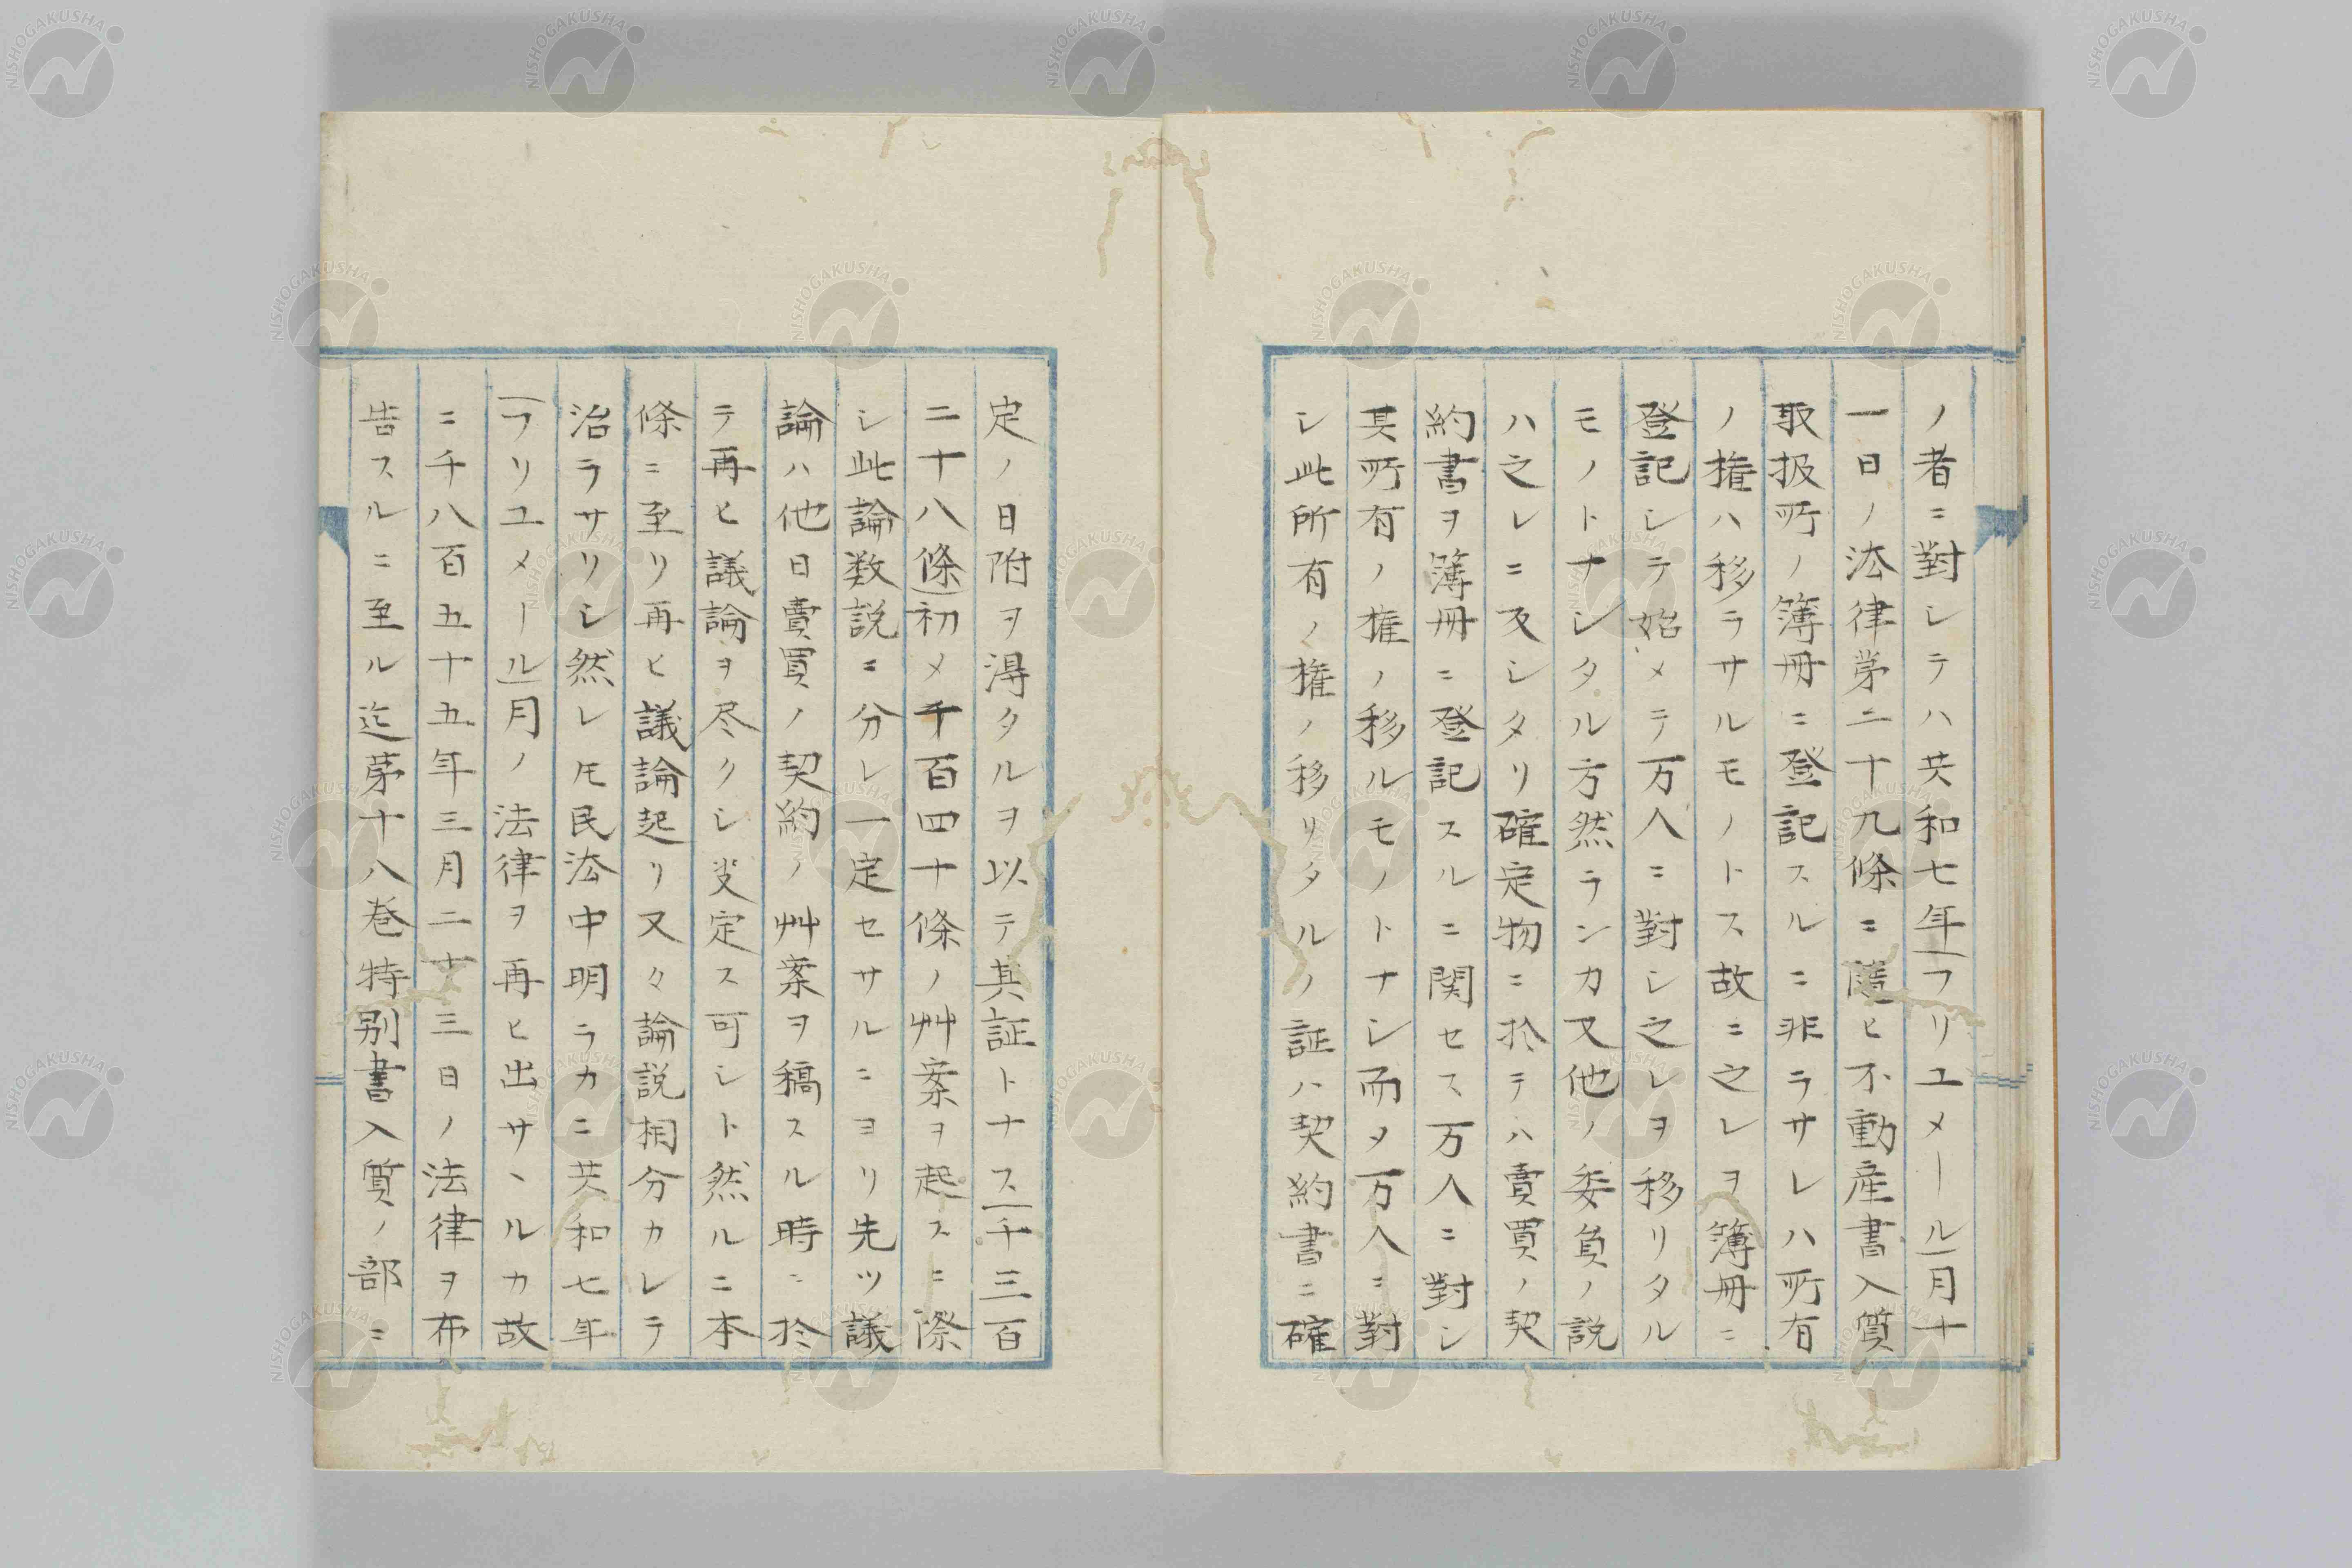 ノ者ニ對シテハ共和七年(フリユメール)月十
一日ノ法律第二十九條ニ隨ヒ不動産書入質
取扱所ノ簿冊ニ登記スルニ非ラサレハ所有
ノ権ハ移ラサルモノトス故ニ之レヲ簿冊ニ
登記シテ始メテ万人ニ對シ之レヲ移リタル
モノトナシタル方然ランカ又他ノ委負ノ説
ハ之レニ反シタリ確定物ニ於テハ賣買ノ契
約書ヲ簿冊ニ登記スルニ関セス万人ニ對シ
其所有ノ権ノ移ルモノトナシ而メ万人ニ對
シ此所有ノ権ノ移リタルノ証ハ契約書ニ確
定ノ日附ヲ得タルヲ以テ其証トナス(千三百
二十八條)初メ千百四十條ノ艸案ヲ起スニ際
シ此論数説ニ分レ一定セサルニヨリ先ツ議
論ハ他日賣買ノ契約ノ艸案ヲ稿スル時ニ於
テ再ヒ議論ヲ尽クシ决定ス可シト然ルニ本
條ニ至リ再ヒ議論起リ又々論説相分カレテ
治ラサリシ然レモ民法中明ラカニ共和七年
(フリユメール)月ノ法律ヲ再ヒ出サヽルカ故
ニ千八百五十五年三月二十三日ノ法律ヲ布
告スルニ至ル迄第十八巻特別書入質ノ部ニ
NISHOGAKUSHA